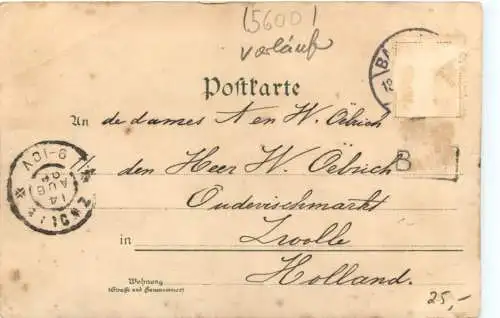 (5600)
Vorläuf
Postkarte
BA
An de dames A en W. Oebrich
p/a den Heer W. Oebrich
Oudevischmarkt
in Zwolle
Holland.
Wohnung
(Straße und Hausnummer)
ZWOLLE
14 AUG 98
9-10V
B
25,-